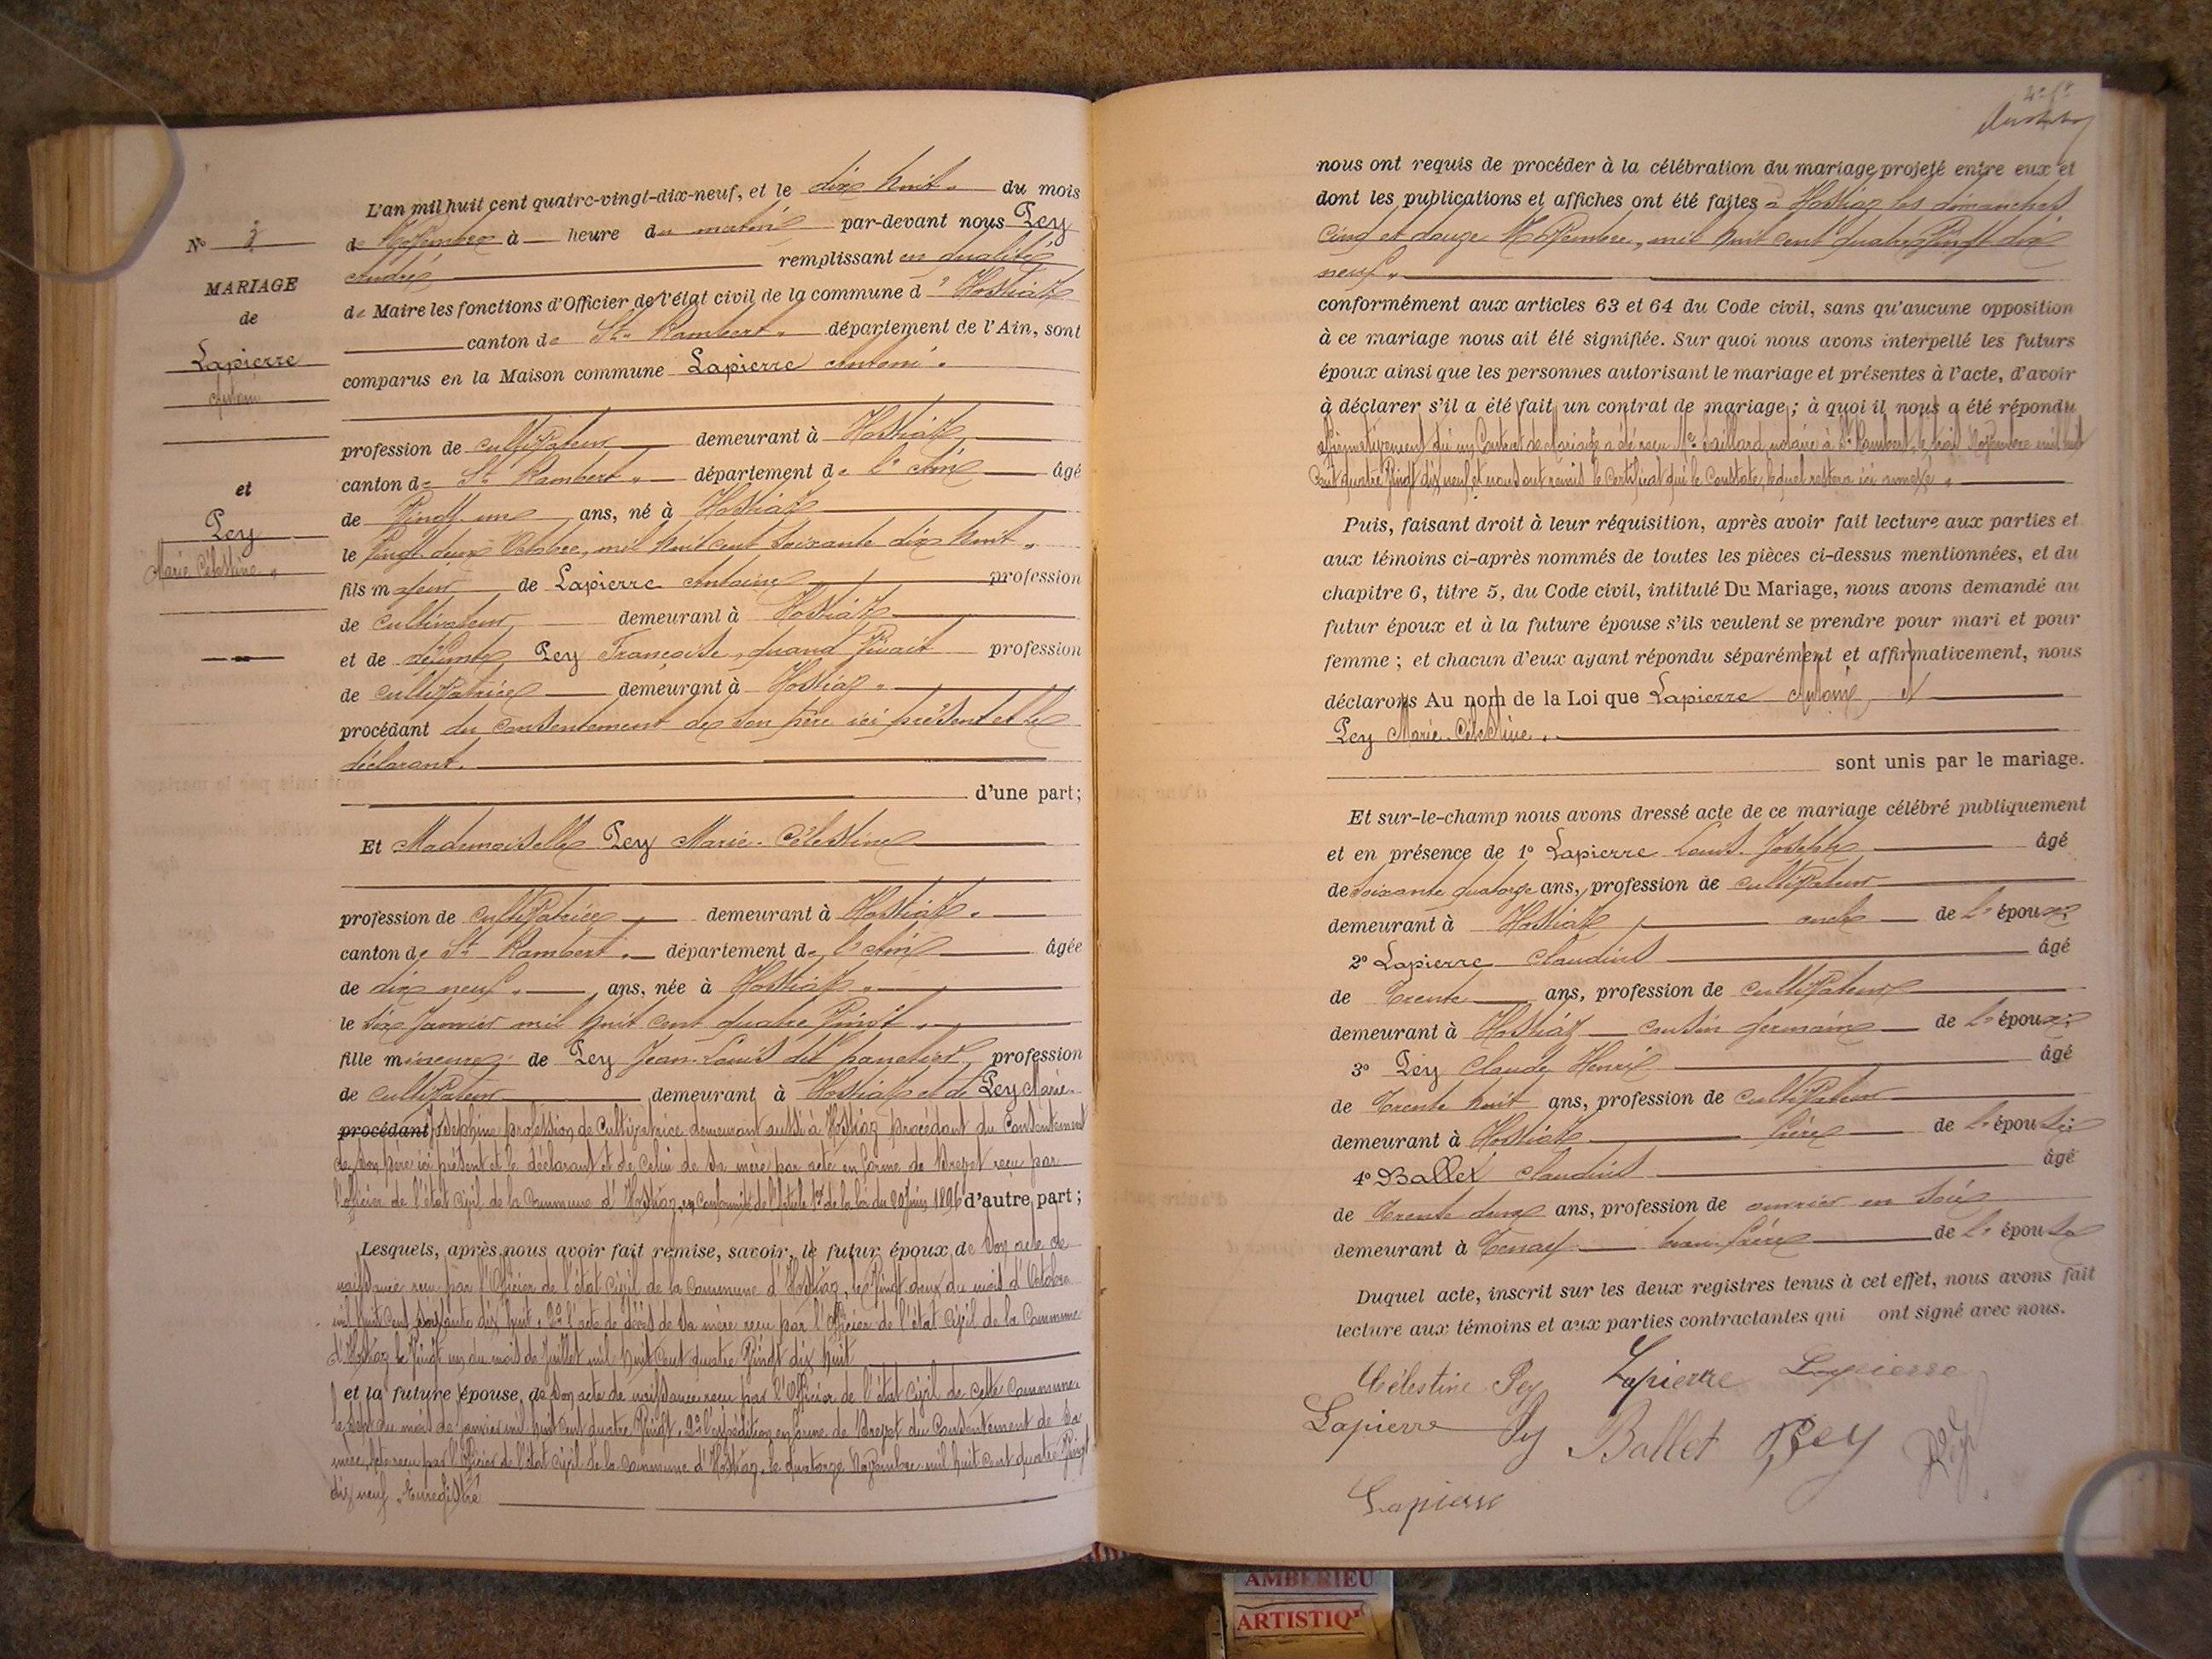 N° 3
MARIAGE
de
Lapierre
Antoine
et
Pey
Marie Célestine
L'an mil huit cent quatre-vingt-dix-neuf, et le dix huit du mois
de Novembre à heure du matin par-devant nous Pey
André remplissant en qualité
de Maire les fonctions d'Officier de l'état civil de la commune d'Hostiaz
canton de St Rambert département de l'Ain, sont
comparus en la Maison commune Lapierre Antoine
profession de cultivateur demeurant à Hostiaz
canton de St Rambert département de l'Ain âgé
de Vingt un ans, né à Hostiaz
le Vingt deux Octobre, mil huit cent soixante dix huit
fils majeur de Lapierre Antoine profession
de cultivateur demeurant à Hostiaz
et de défunte Pey Françoise, quand Vivait profession
de cultivatrice demeurant à Hostiaz
procédant du consentement de son père ici présent et le
déclarant.
d'une part;
Et Mademoiselle Pey Marie-Célestine
profession de cultivatrice demeurant à Hostiaz
canton de St Rambert département de l'Ain âgée
de dix neuf ans, née à Hostiaz
le six Janvier mil huit cent quatre Vingt
fille mineure de Pey Jean-Louis dit profession
de cultivateur demeurant à Hostiaz et de Pey Marie
procédant Joséphine profession de Cultivatrice demeurant aussi à Hostiaz procédant du Consentement
de son père ici présent et le déclarant et de celui de sa mère par acte en forme de Brevet reçu par
l'officier de l'état civil de la commune d'Hostiaz, en conformité de l'article 1er de la loi du 20 Juin 1896 d'autre part;
Lesquels, après nous avoir fait remise, savoir, le futur époux de son acte de
naissance reçu par l'Officier de l'état civil de la commune d'Hostiaz, le Vingt deux du mois d'Octobre
mil huit cent soixante dix huit, 2° l'acte de décès de sa mère reçu par l'officier de l'état civil de la Commune
d'Hostiaz le Vingt un du mois de Juillet mil huit cent quatre Vingt dix huit
et la future épouse, de son acte de naissance reçu par l'Officier de l'état civil de cette Commune
le sept du mois de janvier mil huit cent quatre Vingt, 2° l'expédition en forme de Brevet du Consentement de sa
mère, reçu par l'Officier de l'état civil de la commune d'Hostiaz, le quatorze Novembre mil huit cent quatre Vingt
dix neuf, Enregistré
nous ont requis de procéder à la célébration du mariage projeté entre eux et
dont les publications et affiches ont été faites à Hostiaz les dimanches
cinq et douze Novembre, mil huit cent quatre Vingt dix
neuf
conformément aux articles 63 et 64 du Code civil, sans qu'aucune opposition
à ce mariage nous ait été signifiée. Sur quoi nous avons interpellé les futurs
époux ainsi que les personnes autorisant le mariage et présentes à l'acte, d'avoir
à déclarer s'il a été fait un contrat de mariage; à quoi il nous a été répondu
affirmativement qu'un Contrat de Mariage a été reçu Me Saillard, notaire à St Rambert, le trois Novembre mil huit
cent quatre Vingt dix neuf, et nous ont remis le certificat qui le constate, lequel restera ici annexé.
Puis, faisant droit à leur réquisition, après avoir fait lecture aux parties et
aux témoins ci-après nommés de toutes les pièces ci-dessus mentionnées, et du
chapitre 6, titre 5, du Code civil, intitulé Du Mariage, nous avons demandé au
futur époux et à la future épouse s'ils veulent se prendre pour mari et pour
femme; et chacun d'eux ayant répondu séparément et affirmativement, nous
déclarons Au nom de la Loi que Lapierre Antoine, et
Pey Marie-Célestine
sont unis par le mariage.
Et sur-le-champ nous avons dressé acte de ce mariage célébré publiquement
et en présence de 1° Lapierre Louis-Joseph âgé
de soixante quatorze ans, profession de cultivateur
demeurant à Hostiaz oncle de l'époux;
2° Lapierre Claudius âgé
de Trente ans, profession de cultivateur
demeurant à Hostiaz cousin germain de l'époux;
3° Pey Claude Henri âgé
de Trente huit ans, profession de cultivateur
demeurant à Hostiaz frère de l'épouse;
4° Ballet Claudius âgé
de Trente deux ans, profession de ouvrier en soie
demeurant à Tenay beau-frère de l'épouse
Duquel acte, inscrit sur les deux registres tenus à cet effet, nous avons fait
lecture aux témoins et aux parties contractantes qui ont signé avec nous.
Célestine Pey Lapierre Lapierre
Lapierre Pey Ballet Pey Pey
Lapierre
AMBERIEU
ARTISTIQ